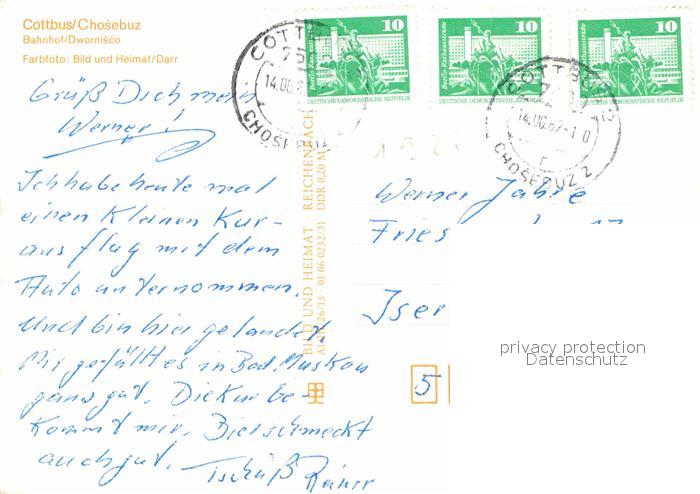 Cottbus/Chośebuz
Bahnhof/Dwornišćo
Farbfoto: Bild und Heimat/Darr
Grüß Dich mein
Werner!
Ich habe heute mal
einen kleinen Kur-
ausflug mit dem
Auto unternommen.
Und bin hier gelandet.
Mir gefällt es in Bad Muskau
ganz gut. Die Kur be-
kommt mir. Bier schmeckt
auch gut. Tschüß Reiner
BILD UND HEIMAT REICHENBACH
01 06 0232/31 DDR 0,20 M
10
Berlin Rathausstraße
DEUTSCHE DEMOKRATISCHE REPUBLIK
10
Berlin Rathausstraße
DEUTSCHE DEMOKRATISCHE REPUBLIK
10
Berlin Rathausstraße
DEUTSCHE DEMOKRATISCHE REPUBLIK
COTTBUS 2
14.06.82-10
CHOŚEBUZ 2
Werner Jahre
Fries
Iser
5
privacy protection
Datenschutz